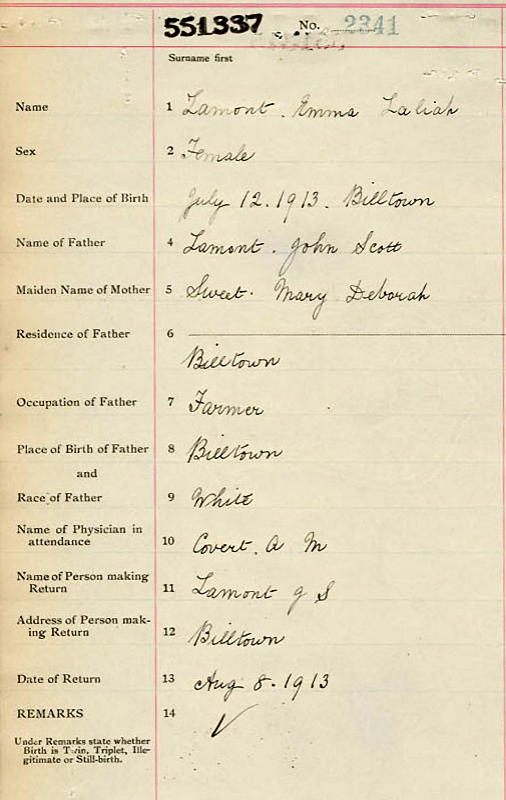 551337 No. 2341
Surname first
Name 1 Lamont. Emma Laliah
Sex 2 Female
Date and Place of Birth July 12. 1913. Billtown
Name of Father 4 Lamont. John Scott
Maiden Name of Mother 5 Sweet. Mary Deborah
Residence of Father 6
Billtown
Occupation of Father 7 Farmer
Place of Birth of Father 8 Billtown
and
Race of Father 9 White
Name of Physician in
attendance 10 Covert. A M
Name of Person making
Return 11 Lamont J S
Address of Person mak-
ing Return 12 Billtown
Date of Return 13 Aug 8. 1913
REMARKS 14 ✓
Under Remarks state whether
Birth is Twin, Triplet, Ille-
gitimate or Still-birth.